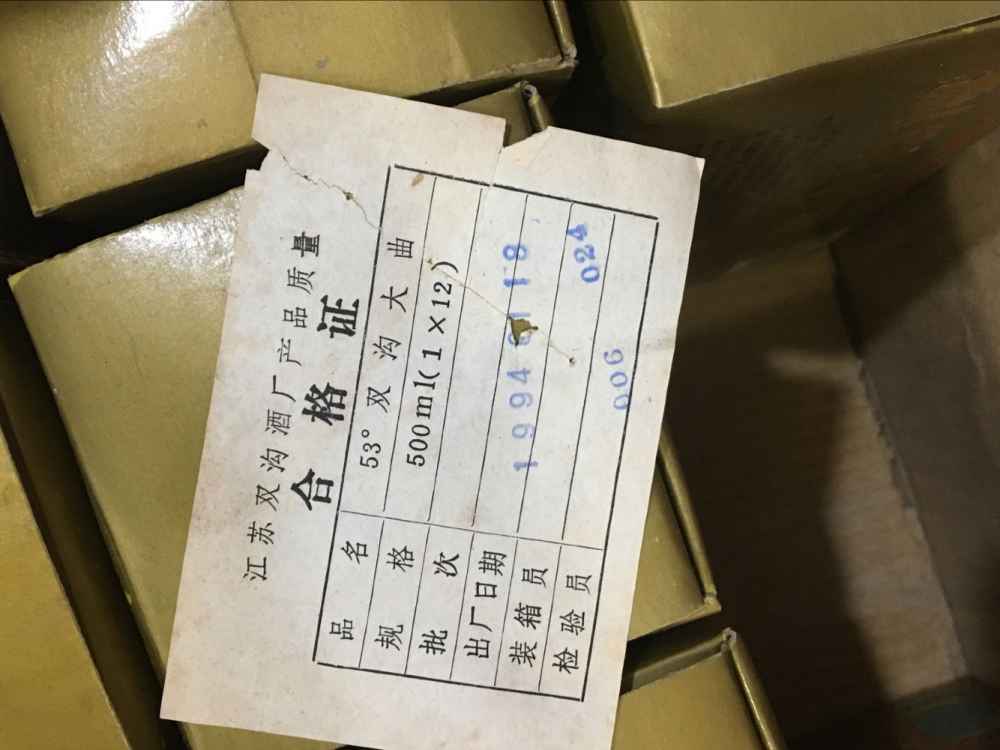 江苏双沟酒厂产品质量
合格证
品名 53°双沟大曲
规格 500ml(1×12)
批次
出厂日期 1994 118
装箱员 024
检验员 006